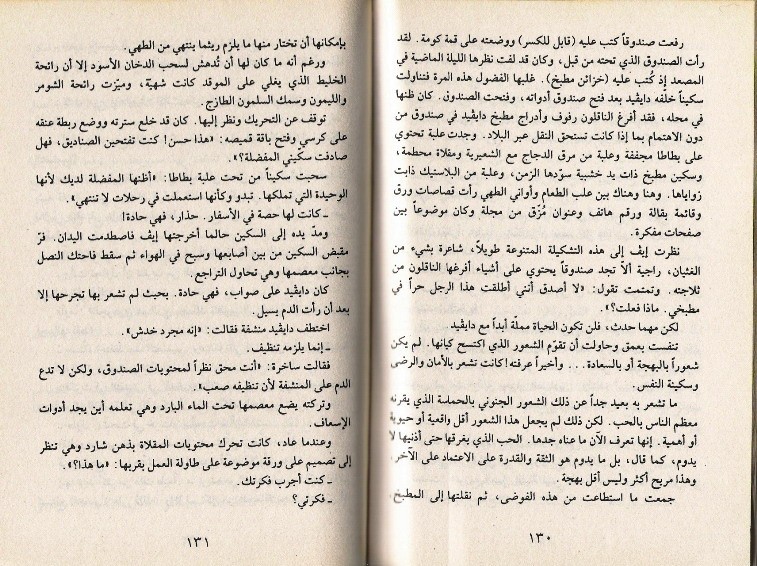 رفعت صندوقاً كتب عليه (قابل للكسر) ووضعته على قمة كومة. لقد
رأت الصندوق الذي تحته من قبل، وكان قد لفت نظرها الليلة الماضية في
المصعد إذ كُتب عليه (خزائن مطبخ). غلبها الفضول هذه المرة فتناولت
سكيناً خلّفه دايڤيد بعد فتح صندوق أدواته، وفتحت الصندوق. كان ظنها
في محله، فقد أفرغ الناقلون رفوف وأدراج مطبخ دايڤيد في صندوق من
دون الاهتمام بما إذا كانت تستحق النقل عبر البلاد. وجدت علبة تحتوي
على بطاطا مجففة وعلبة من مرق الدجاج مع الشعيرية ومقلاة محطمة،
وسكين مطبخ ذات يد خشبية سوّدها الزمن، وعلبة من البلاستيك ذابت
زواياها. وهنا وهناك بين علب الطعام وأواني الطهي رأت قصاصات ورق
وقائمة بقالة ورقم هاتف وعنوان مُزّق من مجلة وكان موضوعاً بين
صفحات مفكرة.
نظرت إيڤ إلى هذه التشكيلة المتنوعة طويلاً، شاعرة بشيء من
الغثيان، راجية ألاّ تجد صندوقاً يحتوي على أشياء أفرغها الناقلون من
ثلاجته. وتمتمت تقول: «لا أصدق أنني أطلقت هذا الرجل حراً في
مطبخي. ماذا فعلت؟».
لكن مهما حدث، فلن تكون الحياة مملّة أبداً مع دايڤيد.
تنفست بعمق وحاولت أن تقوّم الشعور الذي اكتسح كيانها. لم يكن
شعوراً بالبهجة أو بالسعادة... وأخيراً عرفته! كانت تشعر بالأمان والرضى
وسكينة النفس.
ما تشعر به بعيد جداً عن ذلك الشعور الجنوني بالحماسة الذي يقرنه
معظم الناس بالحب. لكن ذلك لم يجعل هذا الشعور أقل واقعية أو حيوية
أو أهمية. إنها تعرف الآن ما عناه جدها. الحب الذي يغرقها حتى أذنيها لا
يدوم، كما قال، بل ما يدوم هو الثقة والقدرة على الاعتماد على الآخر.
وهذا مريح أكثر وليس أقل بهجة.
جمعت ما استطاعت من هذه الفوضى، ثم نقلتها إلى المطبخ.
١٣٠
بإمكانها أن تختار منها ما يلزم ريثما ينتهي من الطهي.
ورغم أنه ما كان لها أن تُدهش لسحب الدخان الأسود إلا أن رائحة
الخليط الذي يغلي على الموقد كانت شهيّة، وميّزت رائحة الشومر
والليمون وسمك السلمون الطازج.
توقف عن التحريك ونظر إليها. كان قد خلع سترته ووضع ربطة عنقه
على كرسي وفتح باقة قميصه: «هذا حسن! كنت تفتحين الصناديق، فهل
صادفت سكّيني المفضلة؟».
سحبت سكيناً من تحت علبة بطاطا: «أظنها المفضلة لديك لأنها
الوحيدة التي تملكها. تبدو وكأنها استعملت في رحلات لا تنتهي».
ـ كانت لها حصة في الأسفار. حذار، فهي حادة!
ومدّ يده إلى السكين حالما أخرجتها إيڤ فاصطدمت اليدان. فرّ
مقبض السكين من بين أصابعها وسبح في الهواء ثم سقط فاحتك النصل
بجانب معصمها وهي تحاول التراجع.
كان دايڤيد على صواب، فهي حادة. بحيث لم تشعر بها تجرحها إلا
بعد أن رأت الدم يسيل.
اختطف دايڤيد منشفة فقالت: «إنه مجرد خدش».
ـ إنما يلزمه تنظيف.
فقالت ساخرة: «أنت محق نظراً لمحتويات الصندوق، ولكن لا تدع
الدم على المنشفة لأن تنظيفه صعب».
وتركته يضع معصمها تحت الماء البارد وهي تعلمه أين يجد أدوات
الإسعاف.
وعندما عاد، كانت تحرك محتويات المقلاة بذهن شارد وهي تنظر
إلى تصميم على ورقة موضوعة على طاولة العمل بقربها: «ما هذا؟».
ـ كنت أجرب فكرتك.
ـ فكرتي؟
١٣١